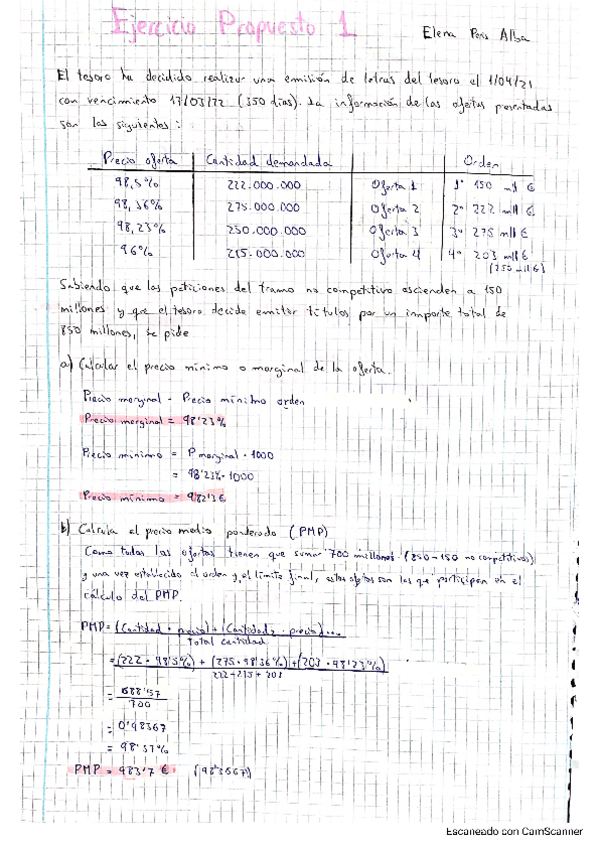 Ejercicio Propuesto 1
Elena Pons Alba
El tesoro ha decidido realizar una emisión de letras del tesoro el 1/04/21
con vencimiento 17/03/22 (350 días). La información de las ofertas presentadas
son las siguientes:
Precio oferta Cantidad demandada Orden
98,5% 222.000.000 Oferta 1 1º 150 mll €
98,36% 275.000.000 Oferta 2 2º 222 mll €
98,23% 250.000.000 Oferta 3 3º 275 mll €
96% 215.000.000 Oferta 4 4º 203 mll €
(250 mll €)
Sabiendo que las peticiones del tramo no competitivo escienden a 150
millones y que el tesoro decide emitir títulos por un importe total de
850 millones, se pide
a) Calcular el precio mínimo o marginal de la oferta.
Precio marginal = Precio mínimo orden
Precio marginal = 98'23%
Precio mínimo = P marginal · 1000
= 98'23% · 1000
Precio mínimo = 982'3€
b) Calcula el precio medio ponderado (PMP)
Como todas las ofertas tienen que sumar 700 millones (850-150 no competitivos)
y una vez establecido el orden y el límite final, estas ofertas son las que participan en el
cálculo del PMP.
PMP = (Cantidad · precio) + (Cantidad2 · precio)...
Total cantidad
= (222 · 98'5%) + (275 · 98'36%) + (203 · 98'23%)
222+275+203
= 688'57
700
= 0'98367
= 98'37%
PMP = 983'7 € (983'67)
Escaneado con CamScanner